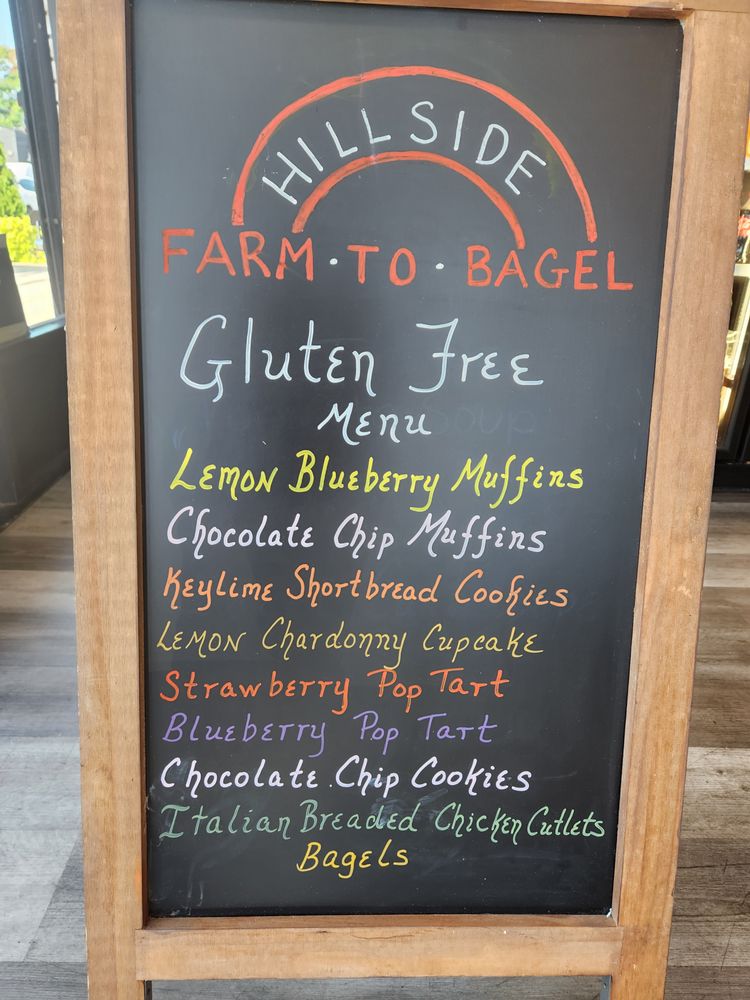 HILLSIDE
FARM·TO·BAGEL
Gluten Free
Menu
Lemon Blueberry Muffins
Chocolate Chip Muffins
Keylime Shortbread Cookies
Lemon Chardonny Cupcake
Strawberry Pop Tart
Blueberry Pop Tart
Chocolate Chip Cookies
Italian Breaded Chicken Cutlets
Bagels